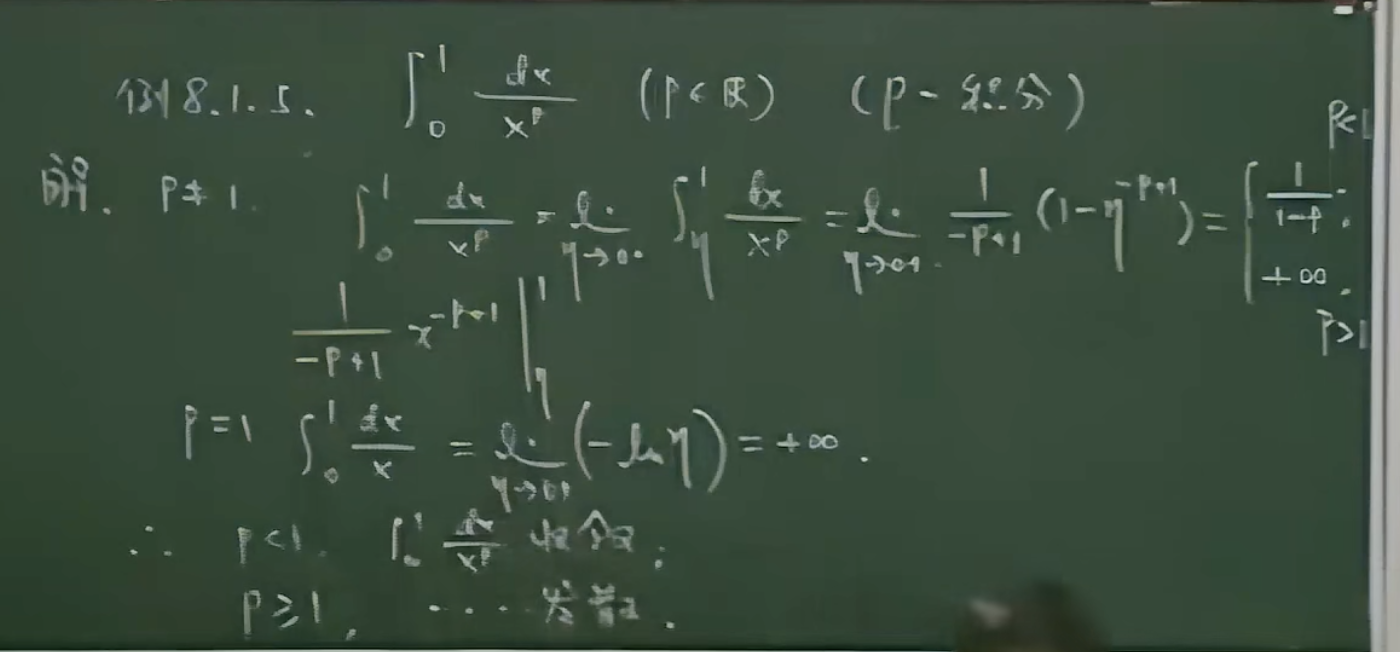 例8.1.5. ∫₀¹ dx/x^p (p∈ℝ) (p-积分)
解. p≠1. ∫₀¹ dx/x^p = lim_{η→0+} ∫_η^1 dx/x^p = lim_{η→0+} 1/(-p+1) (1-η^{-p+1}) = { 1/(1-p), p<1; +∞, p>1
1/(-p+1) x^{-p+1} |_η^1
p=1 ∫₀¹ dx/x = lim_{η→0+} (-ln η) = +∞.
∴ p<1, ∫₀¹ dx/x^p 收敛;
p≥1, ····发散.